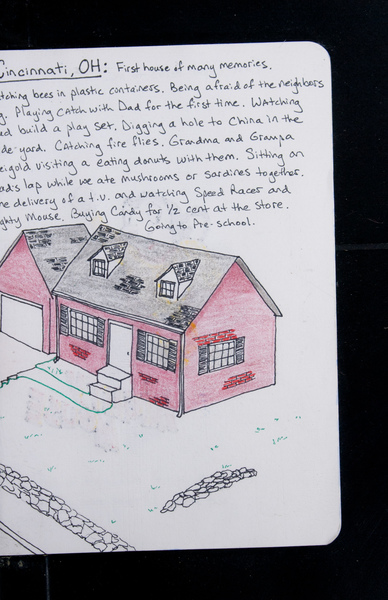 Cincinnati, OH: First house of many memories.
tching bees in plastic containers. Being afraid of the neighbors
g. Playing catch with Dad for the first time. Watching
ad build a play set. Digging a hole to China in the
de-yard. Catching fire flies. Grandma and Granpa
eigold visiting a eating donuts with them. Sitting on
ad's lap while we ate mushrooms or sardines together.
he delivery of a t.v. and watching Speed Racer and
ghty Mouse. Buying Candy for ½ cent at the store.
Going to Pre-school.